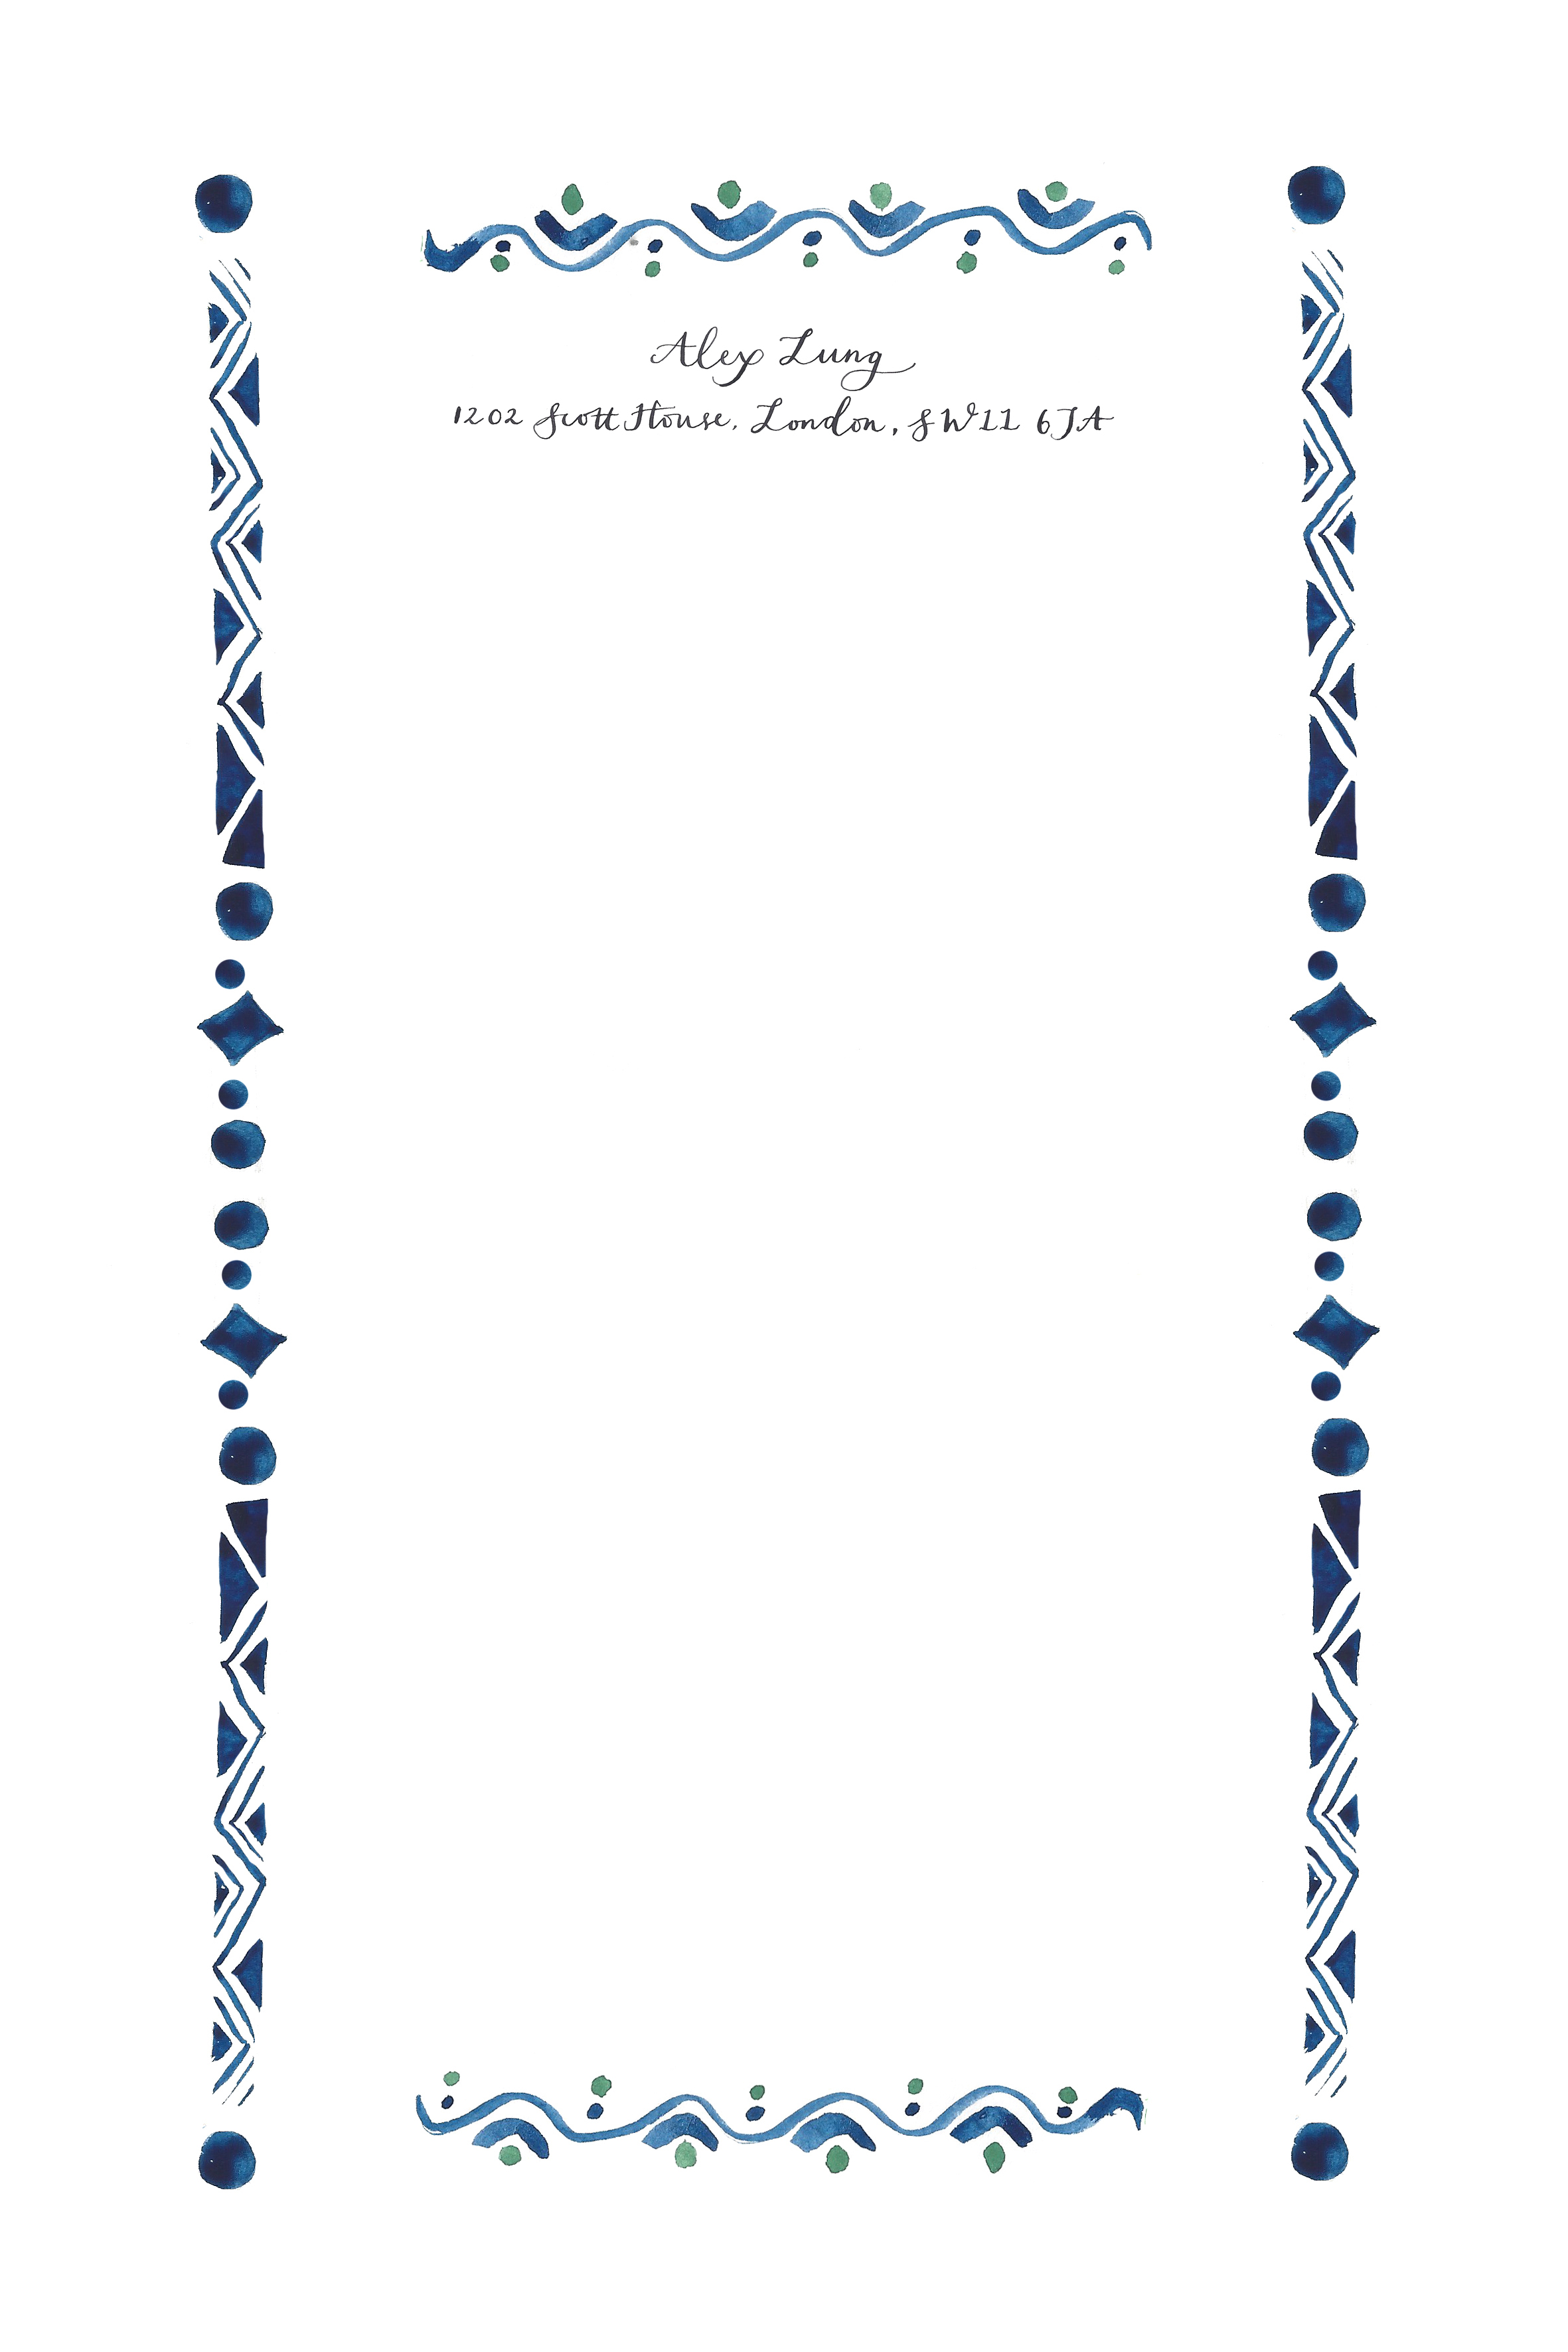 Alex Lung
1202 Scott House, London, SW11 6JA